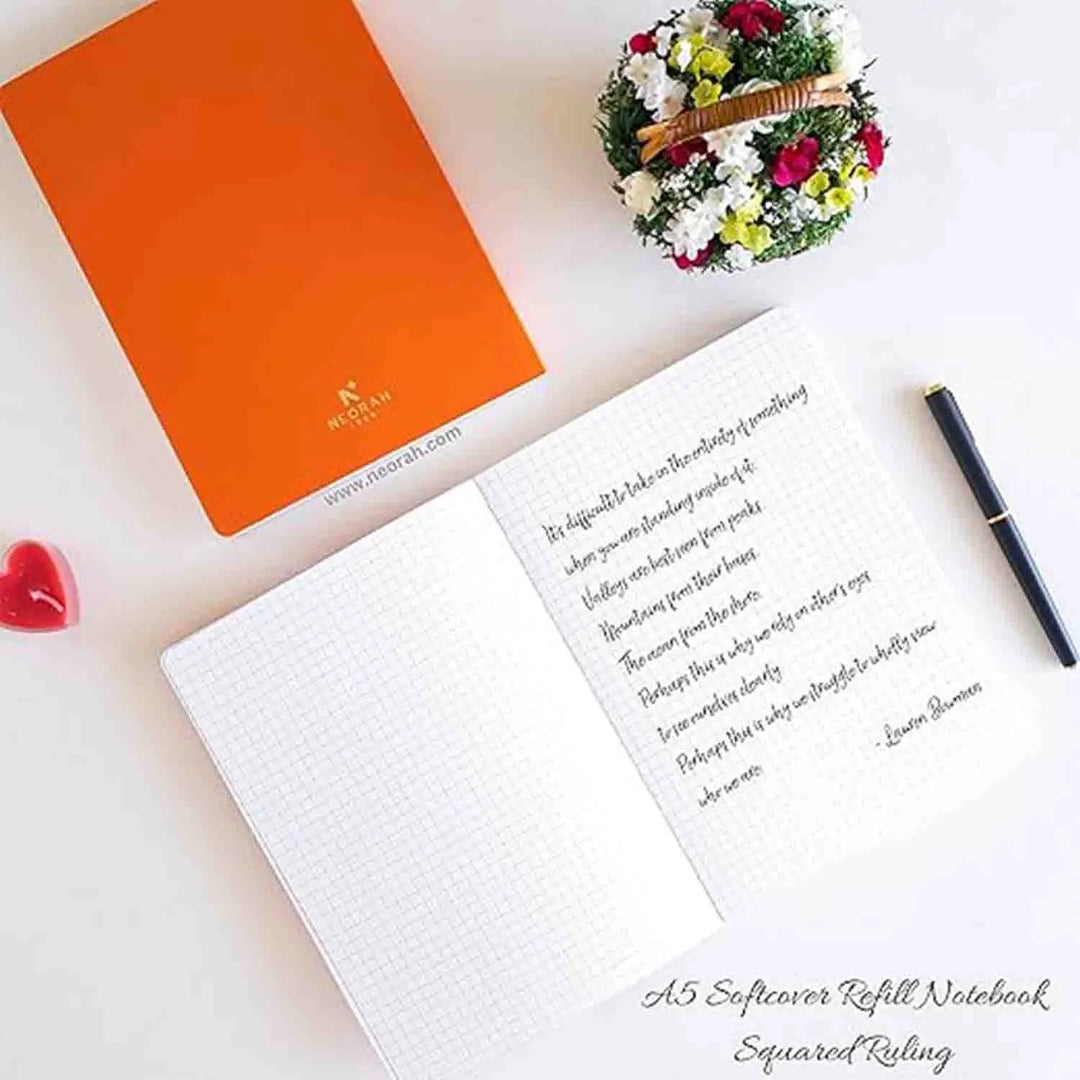 NEORAH
www.neorah.com
It's difficult to take in the entirety of something
when you are standing inside of it.
Valleys are best seen from peaks.
Mountains from their bases.
The ocean from the shore.
Perhaps this is why we rely on other's eyes
to see ourselves clearly
Perhaps this is why we struggle to wholly view
who we are.
- Lauren Bowman
A5 Softcover Refill Notebook
Squared Ruling